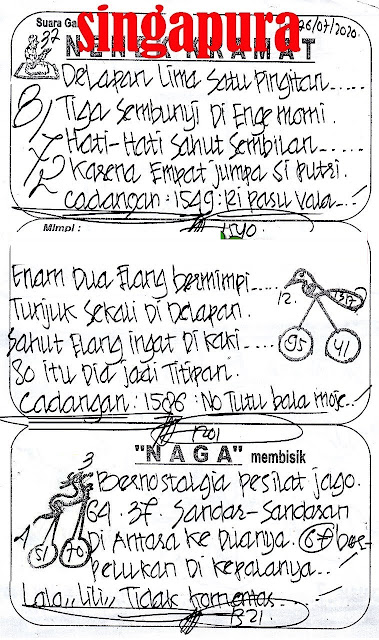 singapura
Suara Ga
26/07/2020
37
NEN KRAMAT
Delapan Lima Satu Pingitan.....
Tiga Sembunyi Di Enge momi.
Hati-Hati Sahut Sembilan.....
Karena Empat jumpa Si Putri.
8/7/2
Cadangan: 1549: Ri pasu Vala..
1540.
Mimpi :
Enam Dua Elang bermimpi.....
Tunjuk Sekali Di Delapan.
Sahut Elang ingat Di kaki....
80 itu Dia jadi Titipan.
12.
1317
95 41
Cadangan: 1586: No Tutu bala moje..
1201
"NAGA" membisik
3
Bernostalgia pesilat jago.
64.37. Sandar-Sandaran
Di Antara Ke Duanya. 67 ber-
pelukan Di Kepalanya...
1
51 70
Lala,, lili,, Tidak Komentar...
1321.